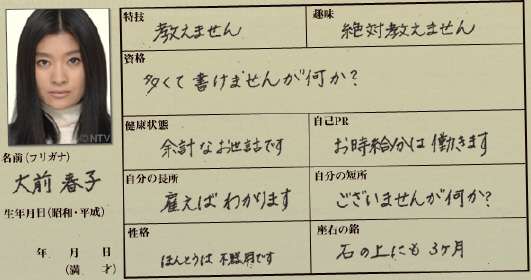 特技
教えません
趣味
絶対教えません
資格
多くて書けませんが何か?
健康状態
余計なお世話です
自己PR
お時給分は働きます
自分の長所
雇えばわかります
自分の短所
ございませんが何か?
性格
ほんとうは不器用です
座右の銘
石の上にも3ヶ月
©NTV
名前(フリガナ)
大前春子
生年月日(昭和・平成)
年 月 日
(満 才)